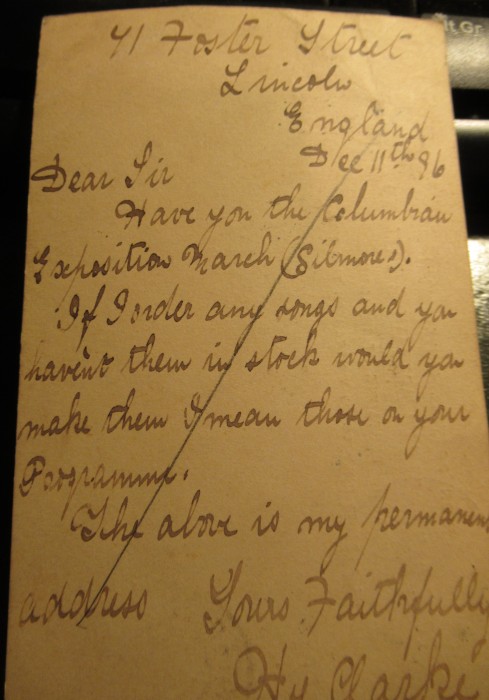 71 Foster Street
Lincoln
England
Dec 11th 96
Dear Sir
Have you the Columbian
Exposition March (Gilmores).
If I order any songs and you
haven't them in stock would you
make them I mean those on your
Programme.
The above is my permanent
address Yours Faithfully
Hy Clarke